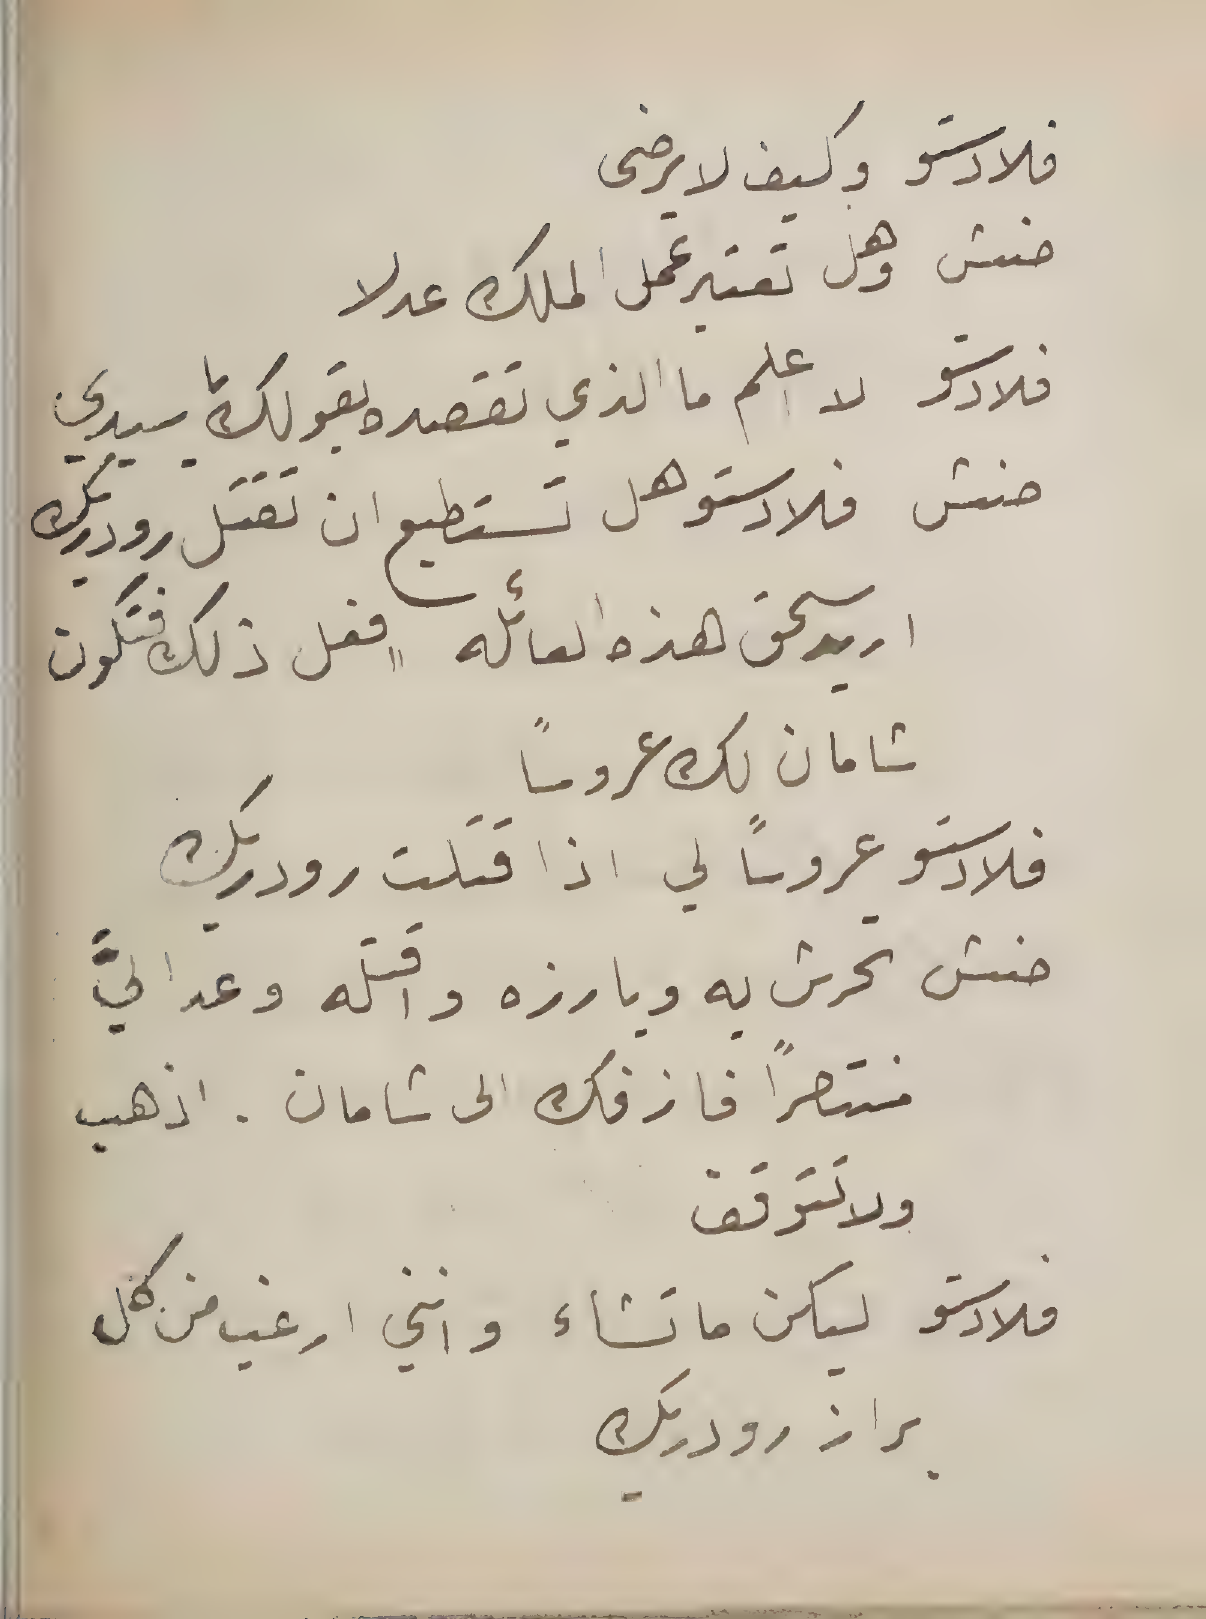 فلادستو وكيف لا يرضى
خنتش وهل تعتبر عمل الملك عدلا
فلادستو لا اعلم ما الذي تقصده بقولك يا سيدي
خنتش فلادستو هل تستطيع ان تقتل رودريك
اريد سحق هذه العائله افعل ذلك فتكون
شامان لك عروساً
فلادستو عروساً لي اذا قتلت رودريك
خنتش تحرش به وبارزه واقتله وعد اليَّ
منتصراً فازفك الى شامان . اذهب
ولا تتوقف
فلادستو ليكن ما تشاء وانني ارغب من كل
براز رودريك